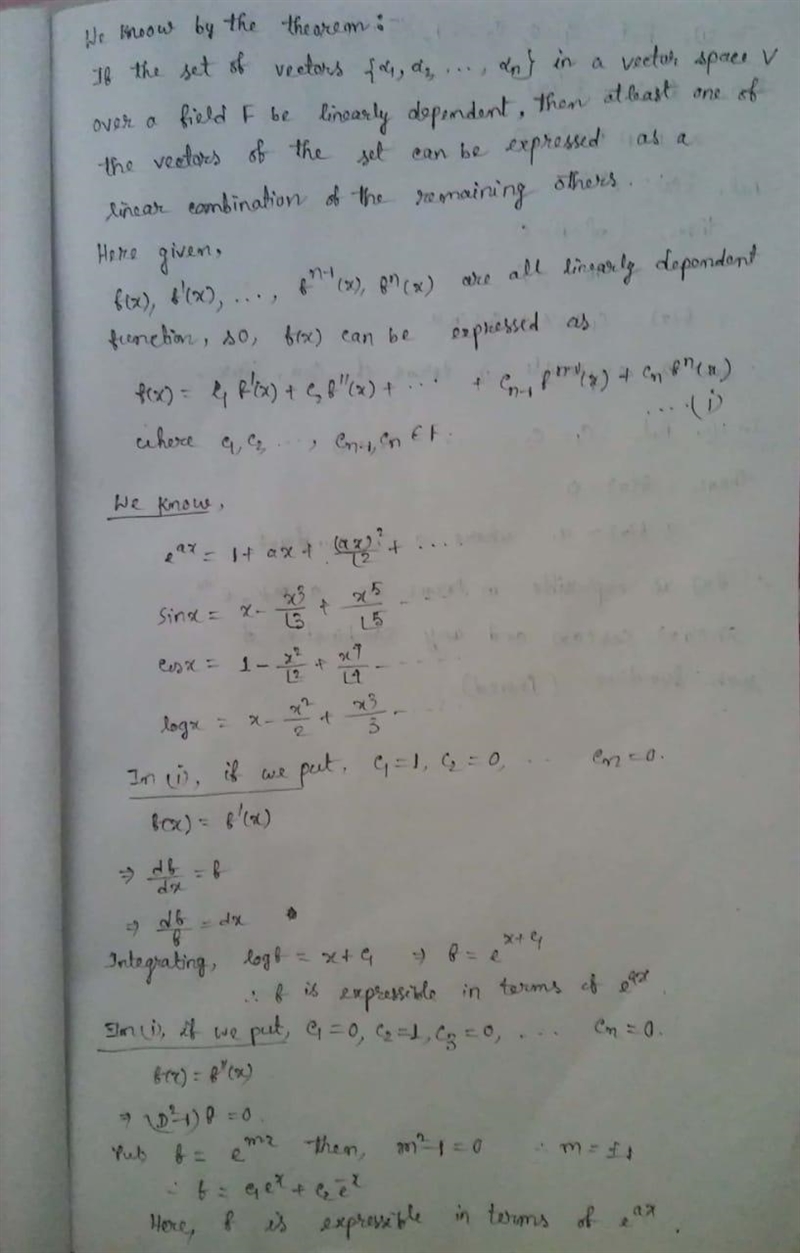 We know by the theorem:
If the set of vectors {α1, α2, ..., αn} in a vector space V
over a field F be linearly dependent, then atleast one of
the vectors of the set can be expressed as a
linear combination of the remaining others.
Here given,
f(x), f'(x), ..., f^{n-1}(x), f^n(x) are all linearly dependent
function, so, f(x) can be expressed as
f(x) = C1 f'(x) + C2 f''(x) + ... + Cn-1 f^{n-1}(x) + Cn f^n(x)
... (i)
where c1, c2, ..., Cn-1, Cn ∈ F.
We know,
e^{ax} = 1 + ax + (ax)^2/⌊2 + ....
sinx = x - x^3/⌊3 + x^5/⌊5 - ...
cosx = 1 - x^2/⌊2 + x^4/⌊4 - ....
logx = x - x^2/2 + x^3/3 - ...
In (i), if we put, C1 = 1, C2 = 0, .. Cn = 0.
f(x) = f'(x)
⇒ df/dx = f
⇒ df/f = dx
Integrating, logf = x + C1 ⇒ f = e^{x+C1}
∴ f is expressible in terms of e^{ax}.
In (i), if we put, C1 = 0, C2 = 1, C3 = 0, ... Cn = 0.
f(x) = f''(x)
⇒ (D^2-1) f = 0.
Put f = e^{mx} then, m^2-1 = 0 ∴ m = ±1
∴ f = C1 e^x + C2 e^{-x}
Here, f is expressible in terms of e^{ax}.